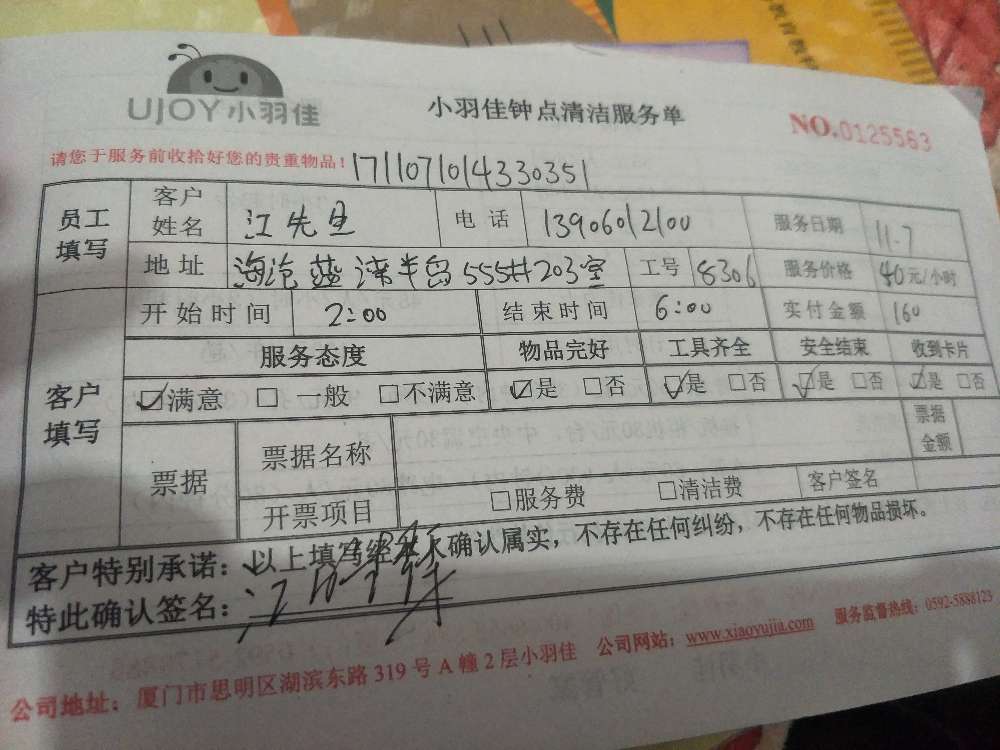 UJOY小羽佳
小羽佳钟点清洁服务单
NO.0125563
请您于服务前收拾好您的贵重物品！
1711071014330351
员工填写 客户姓名 江先生 电话 13906012100 服务日期 11.7
地址 海沧蓝湾半岛555#203室 工号 8306 服务价格 40元/小时
客户填写 开始时间 2:00 结束时间 6:00 实付金额 160
服务态度 物品完好 工具齐全 安全结束 收到卡片
☑满意 □一般 □不满意 ☑是 □否 ☑是 □否 ☑是 □否 ☑是 □否
票据 票据名称 票据金额
开票项目 □服务费 □清洁费 客户签名
客户特别承诺：以上填写经本人确认属实，不存在任何纠纷，不存在任何物品损坏。
特此确认签名：
公司地址：厦门市思明区湖滨东路319号A幢2层小羽佳 公司网站：www.xiaoyujia.com 服务监督热线：0592-5888123